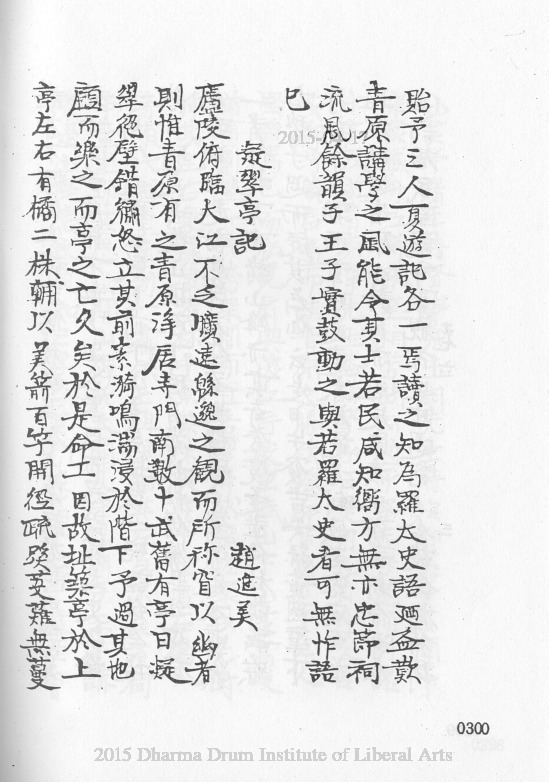 貽予三人夏遊記各一焉讀之知為羅太史語廼益歎
青原講學之風能令其士若民咸知嚮方無亦忠節祠
流風餘韻子王子實鼓動之與若羅太史者可無怍語
已
凝翠亭記
趙進美
廬陵俯臨大江不乏曠遠緜邈之觀而所稱窅以幽者
則惟青原有之青原淨居寺門南數十武舊有亭曰凝
翠絕壁錯繡怒立其前素漪鳴湍浸於階下予過其地
顧而樂之而亭之亡久矣於是命工因故址築亭於上
亭左右有橘二株輔以美箭百竿開徑疏蹊芟薙無蔓
0300
2015 Dharma Drum Institute of Liberal Arts